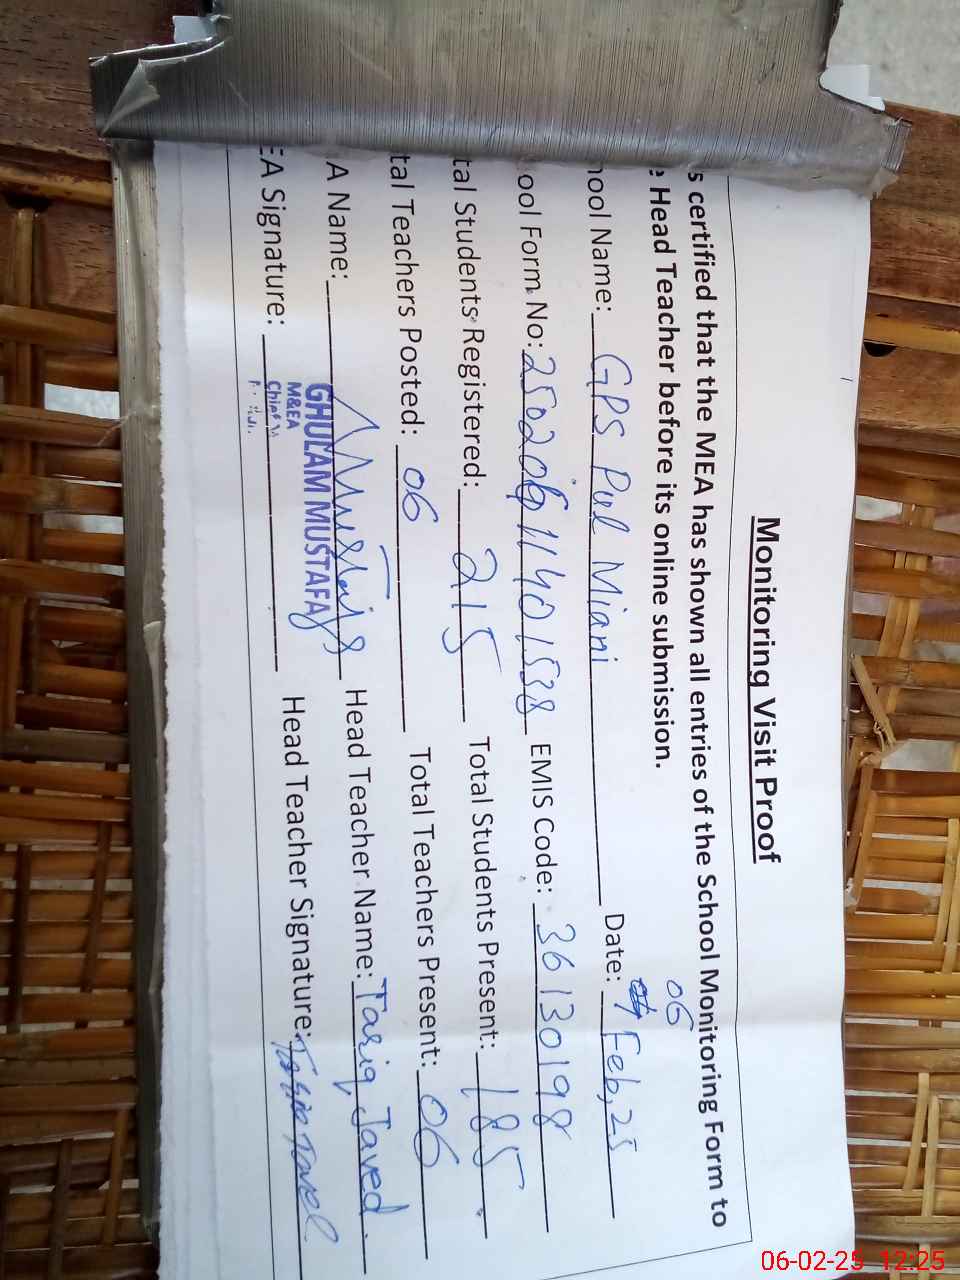 Monitoring Visit Proof
s certified that the MEA has shown all entries of the School Monitoring Form to
e Head Teacher before its online submission.
06
hool Name: GPS Pul Miani Date: Feb, 25
ool Form No: 25020611401538 EMIS Code: 36130198
tal Students Registered: 215 Total Students Present: 185
tal Teachers Posted: 06 Total Teachers Present: 06
A Name: Head Teacher Name: Tariq Javed
GHULAM MUSTAFA
M&EA
EA Signature: Head Teacher Signature: Tariq Javed
06-02-25 12:25